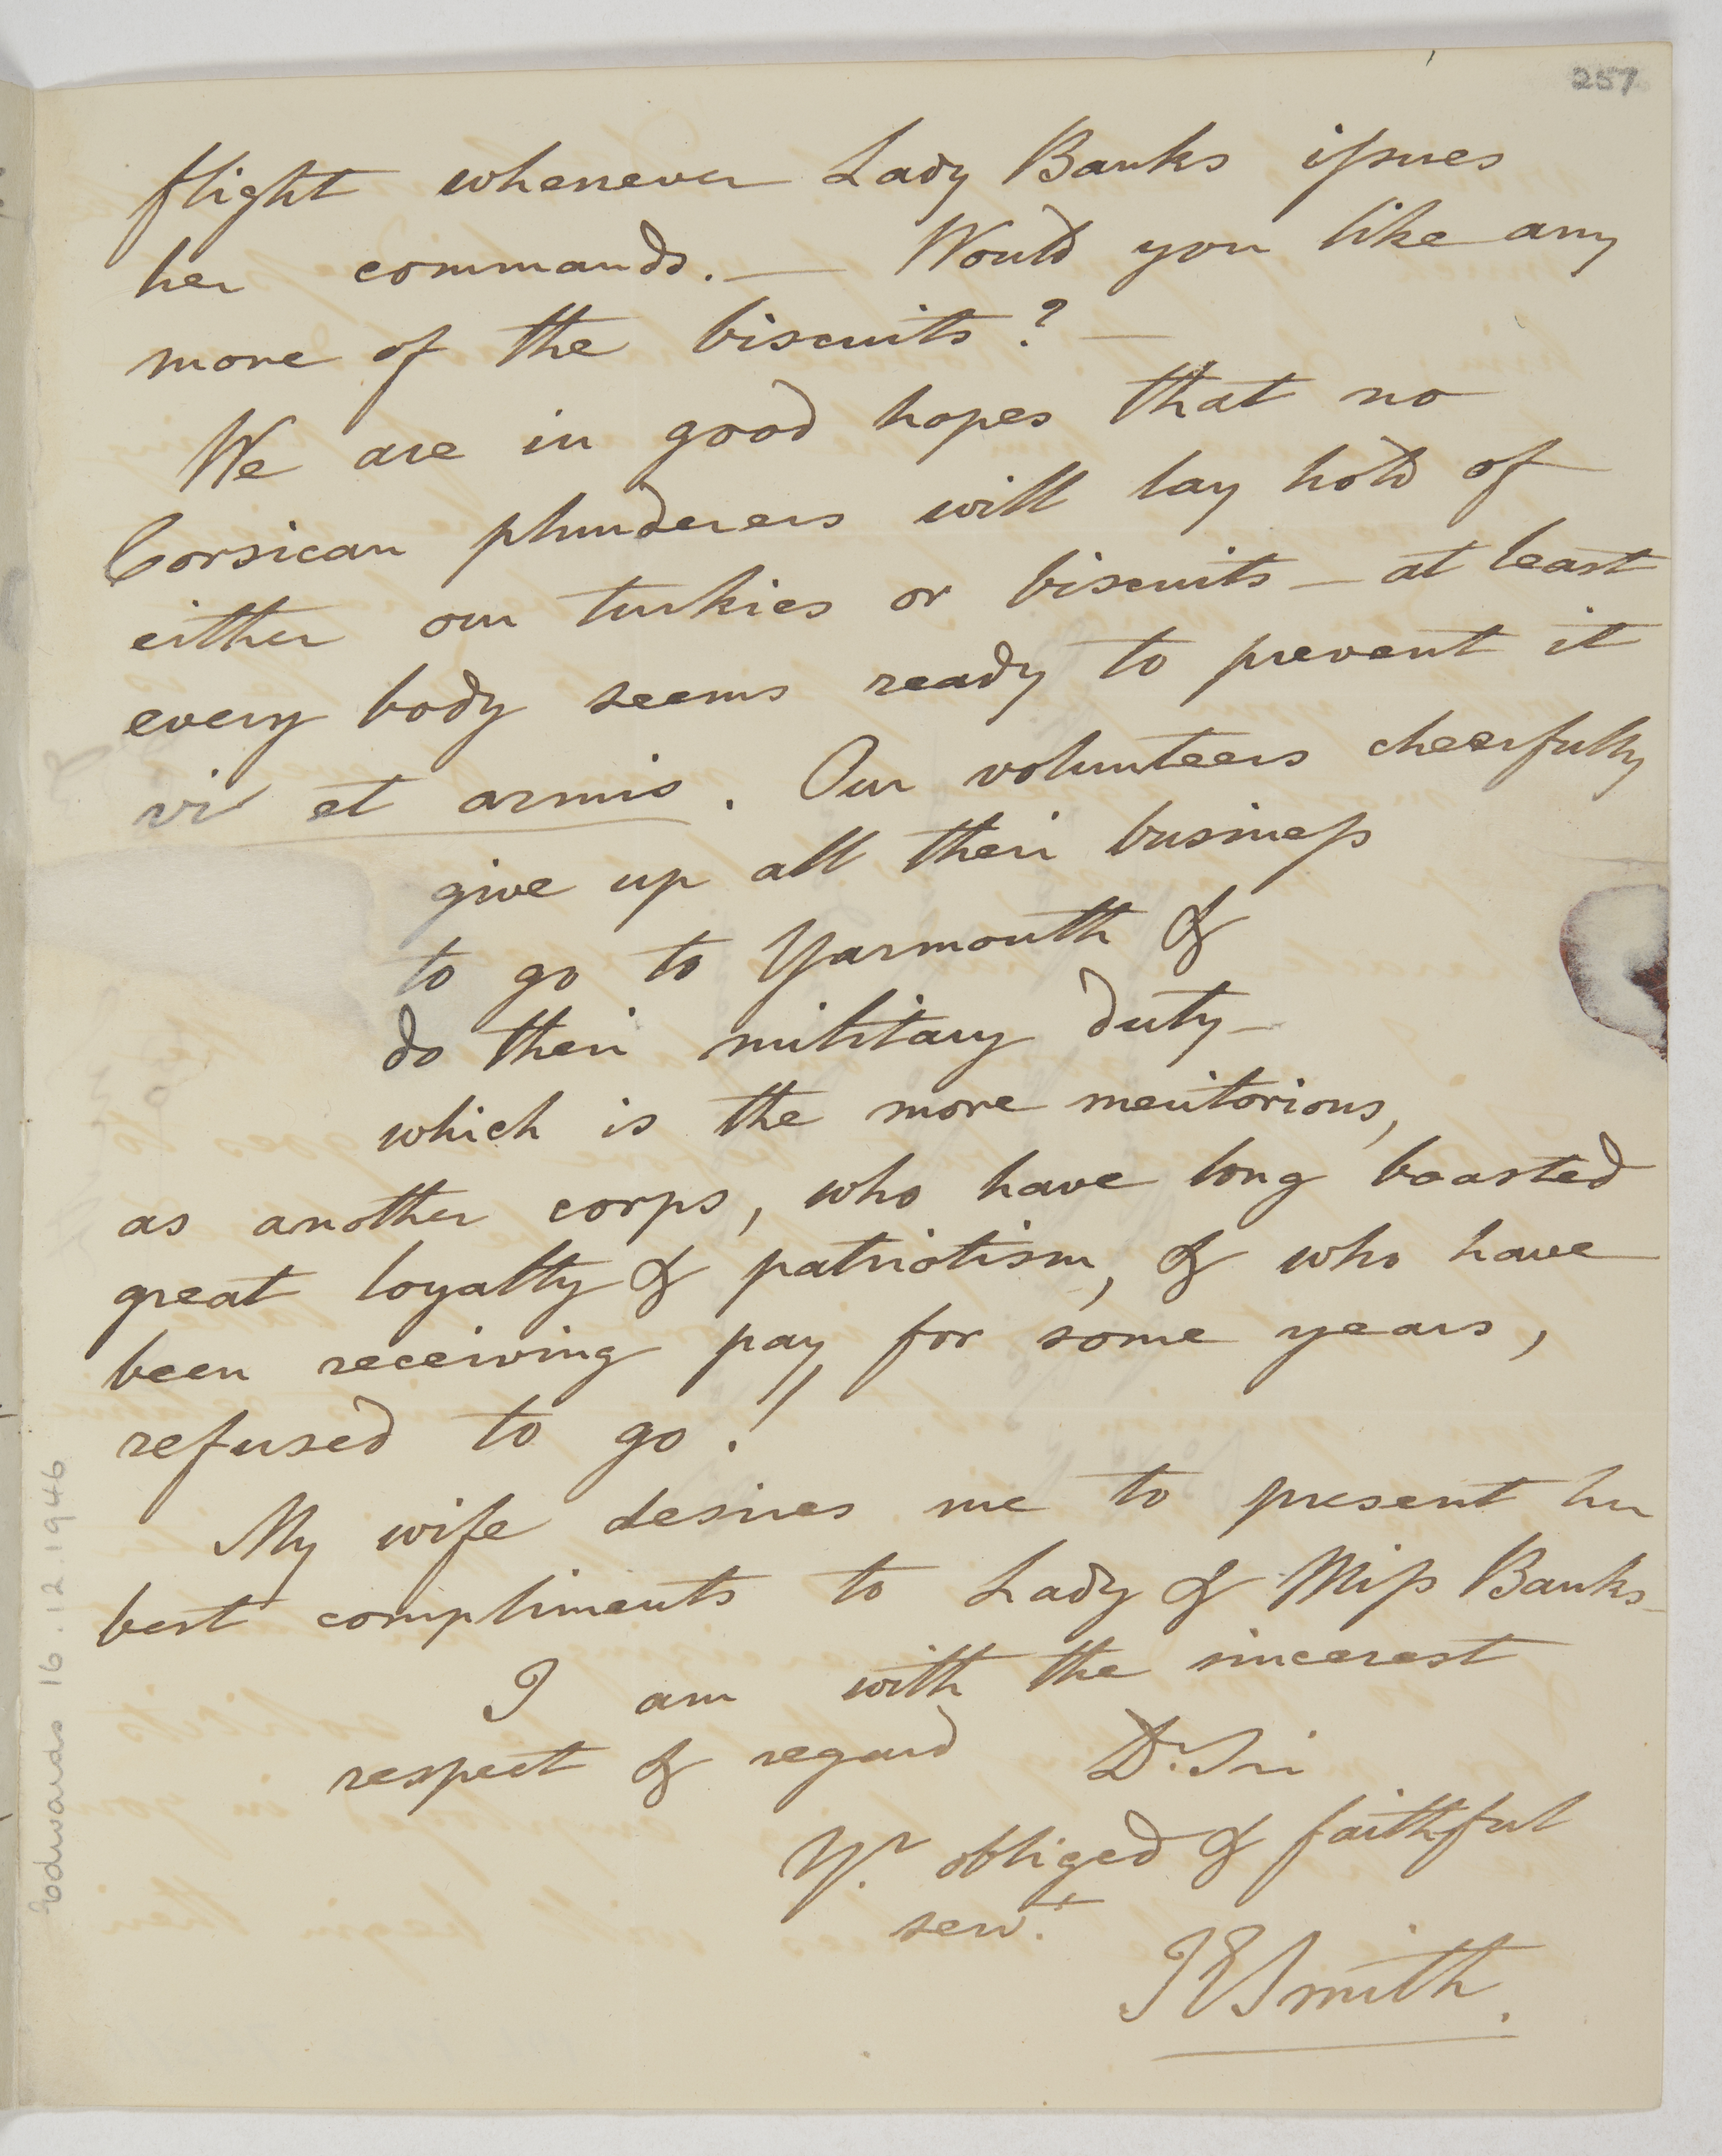 257
flight whenever Lady Banks issues
her commands. — Would you like any
more of the biscuits? —
We are in good hopes that no
Corsican plunderers will lay hold of
either our turkies or biscuits — at least
every body seems ready to prevent it
vi et armis. Our volunteers cheerfully
give up all their business
to go to Yarmouth &
do their military duty —
which is the more meritorious,
as another corps, who have long boasted
great loyalty & patriotism, & who have
been receiving pay for some years,
refused to go!
My wife desires me to present her
best compliments to Lady & Miss Banks —
I am with the sincerest
respect & regard Dr. Sir
Yr. obliged & faithful
servt.
JESmith.
Edwards 16.12.1946